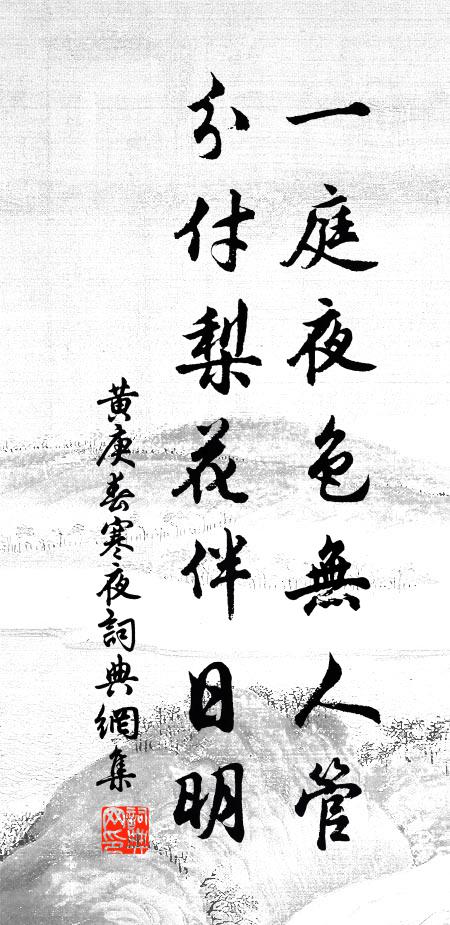 一庭夜色無人管
分付梨花伴日明
黄庚春寒夜詞典網集